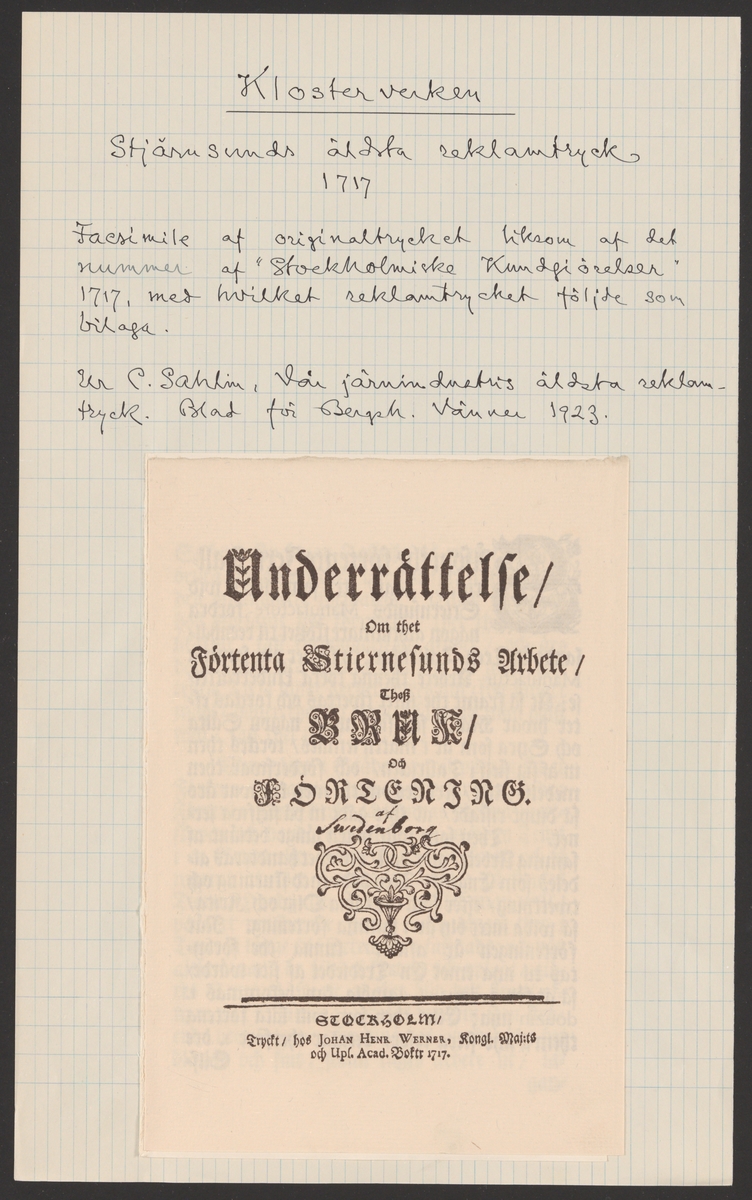 Klosterverken
Stjärnsunds äldsta reklamtryck
1717
Facsimile af originaltrycket liksom af det
nummer af "Stockholmiske Kundgiörelser"
1717, med hvilket reklamtrycket följde som
bilaga.
Ur C. Sahlin, Vår järnindustris äldsta reklam-
tryck. Blad för Bergsh. Vänner 1923.
Underrättelse/
Om thet
Förtenta Stiernesunds Arbete/
Theß
BRUK/
Och
FÖRTENING.
af
Swedenborg
STOCKHOLM/
Tryckt/ hos JOHAN HENR WERNER, Kongl. Maj:ts
och Upl. Acad. Boktr 1717.